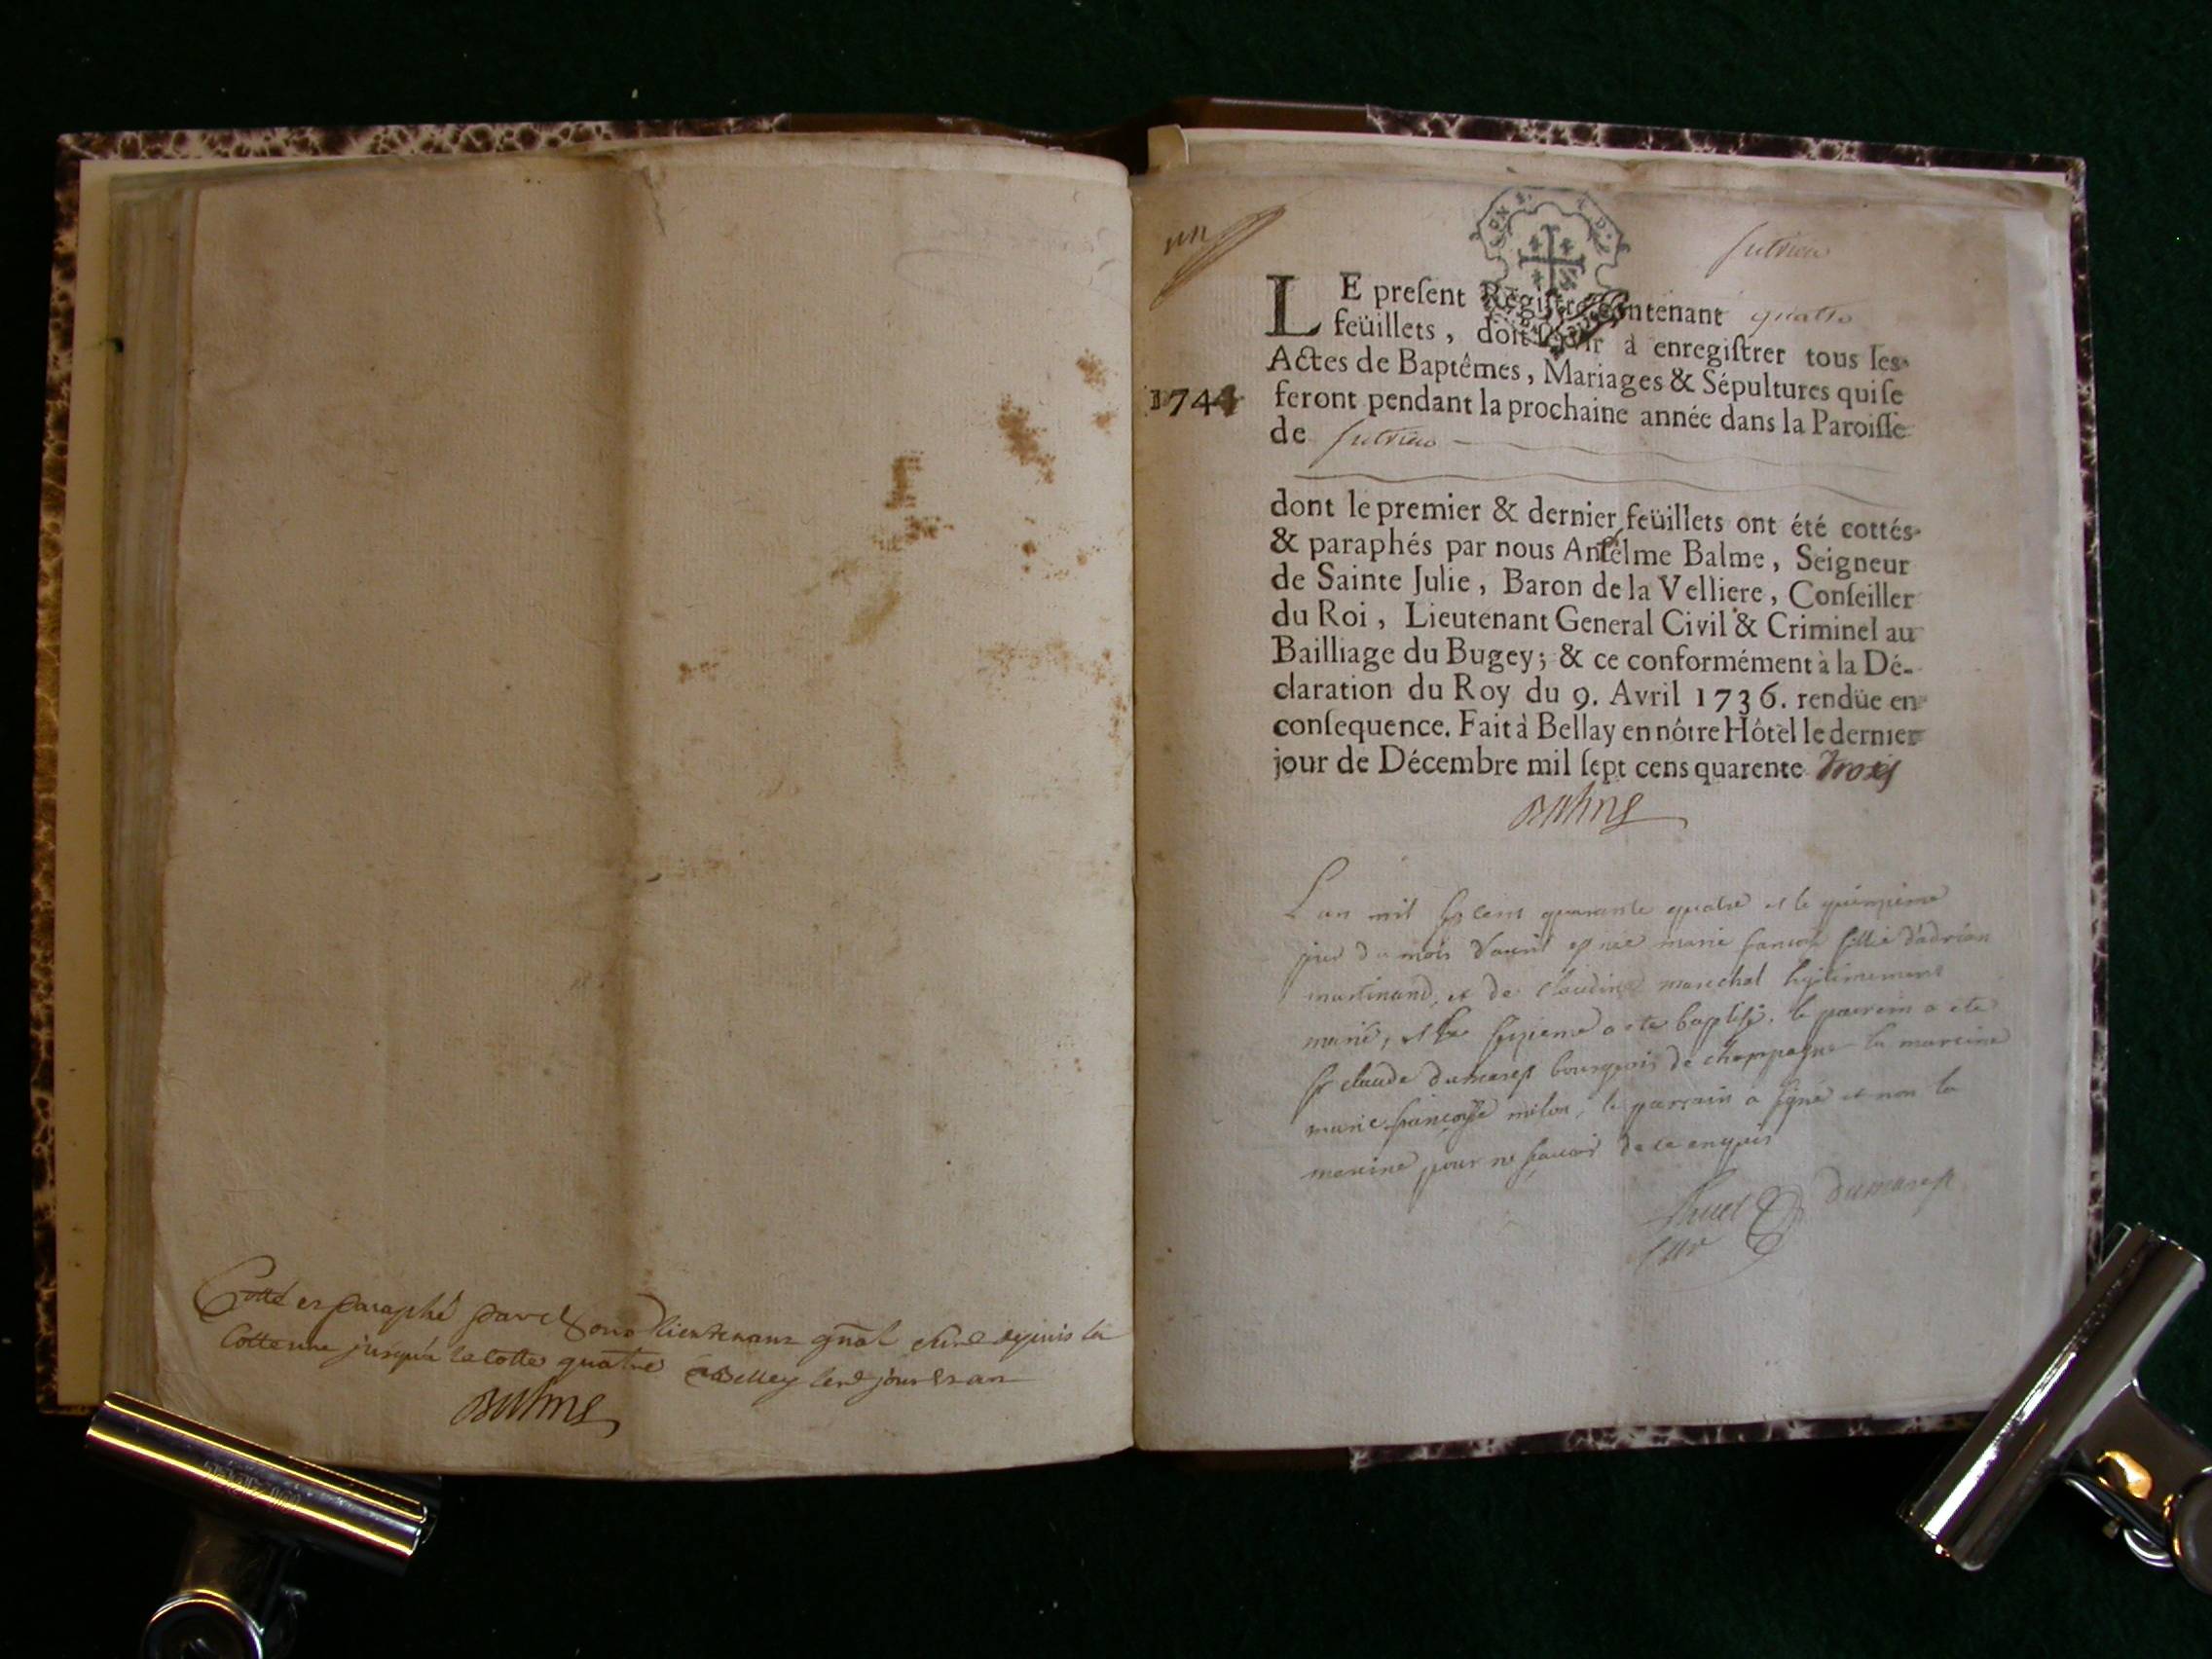 Cotté et paraphé par Nous Lieutenant gñal civil depuis la
Cotte une jusqu'a la cotte quatre a Belley led jour et an
Balme
un
Sutrieu
LE preſent Regiſtre contenant quatre
feüillets, doit ſervir à enregiſtrer tous les
Actes de Baptêmes, Mariages & Sépultures qui ſe
1744 feront pendant la prochaine année dans la Paroiſſe
de Sutrieu
dont le premier & dernier feüillets ont été cottés
& paraphés par nous Anſelme Balme, Seigneur
de Sainte Julie, Baron de la Velliere, Conſeiller
du Roi, Lieutenant General Civil & Criminel au
Bailliage du Bugey; & ce conformément à la Dé-
claration du Roy du 9. Avril 1736. rendüe en
conſequence. Fait à Bellay en nôtre Hôtel le dernier
jour de Décembre mil ſept cens quarente trois
Balme
L'an mil sept cent quarante quatre et le quinzieme
jour du mois d'avril est née marie fillie d'adrian
martinand, et de claudine marechal legitimement
marié, et le sezieme a ete baptisé. le parrein a ete
sr claude dumarest bourgeois de champagne la mareine
marie françoise milon, le parrain a signé et non la
mareine pour ne sçavoir de ce enquis
dumarest
Curé